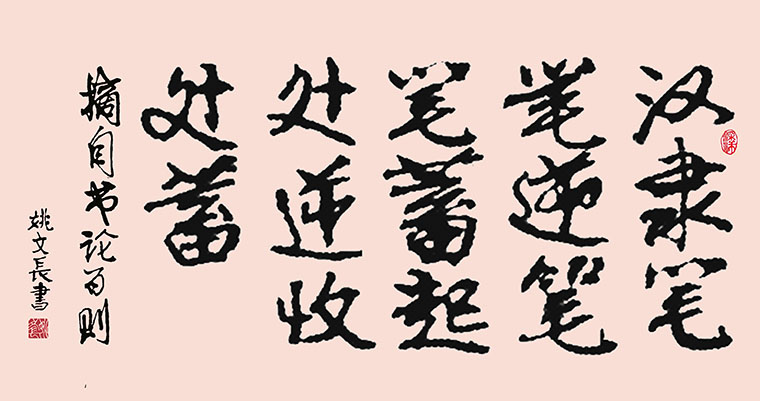 汉隶笔
笔逆笔
笔蓄起
处逆收
处蓄
摘自书论百则
姚文長書